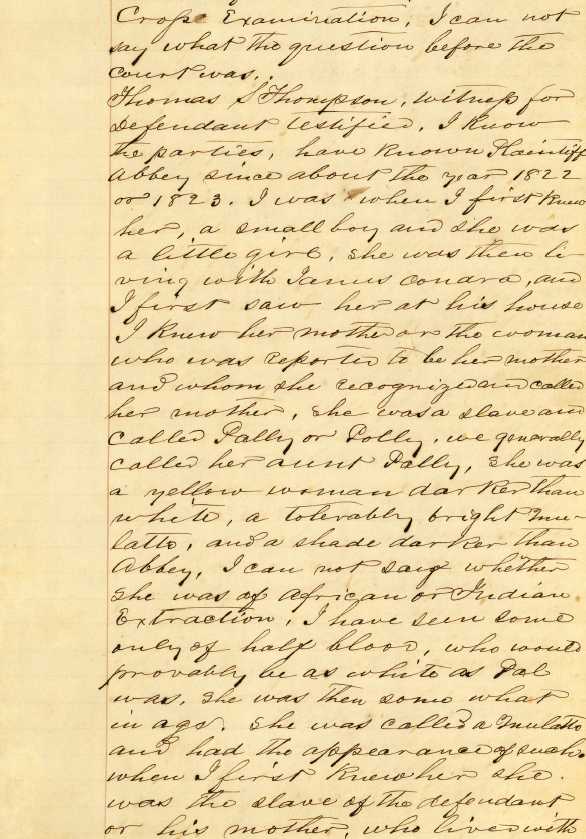 Cross Examination, I can not
say what the question before the
court was.
Thomas S Thompson, witness for
Defendant testified, I know
the parties, have known Plaintiff
Abbey since about the year 1822
or 1823. I was when I first knew
her, a small boy and she was
a little girl, she was then li-
ving with James Condra, and
I first saw her at his house
I knew her mother or the woman
who was reported to be her mother
and whom she recognized and called
her mother, she was a slave and
called Pally or Polly, we generally
called her aunt Pally, she was
a yellow woman darker than
white, a tolerably bright mu-
latto, and a shade darker than
Abbey, I can not say whether
she was of African or Indian
Extraction, I have seen some
only of half blood, who would
provably be as white as Pal
was, she was then some what
in age. she was called a mulatto
and had the appearance of such.
when I first knew her she
was the slave of the defendant
or his mother, who lived with